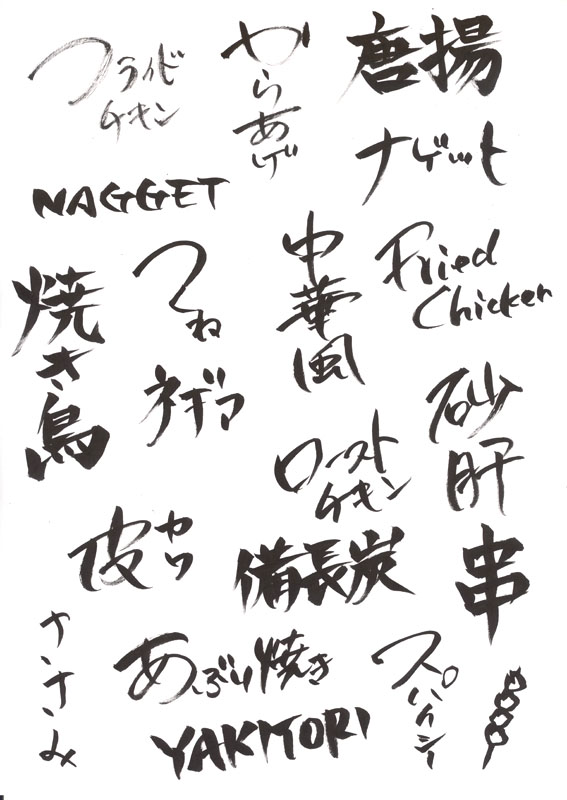 フライド
チキン
からあげ
唐揚
ナゲット
NAGGET
中華風
Fried
Chicken
つくね
焼き鳥
ネギマ
砂肝
ロースト
チキン
皮
カワ
備長炭
串
ささみ
あぶり焼き
スパイシー
YAKITORI